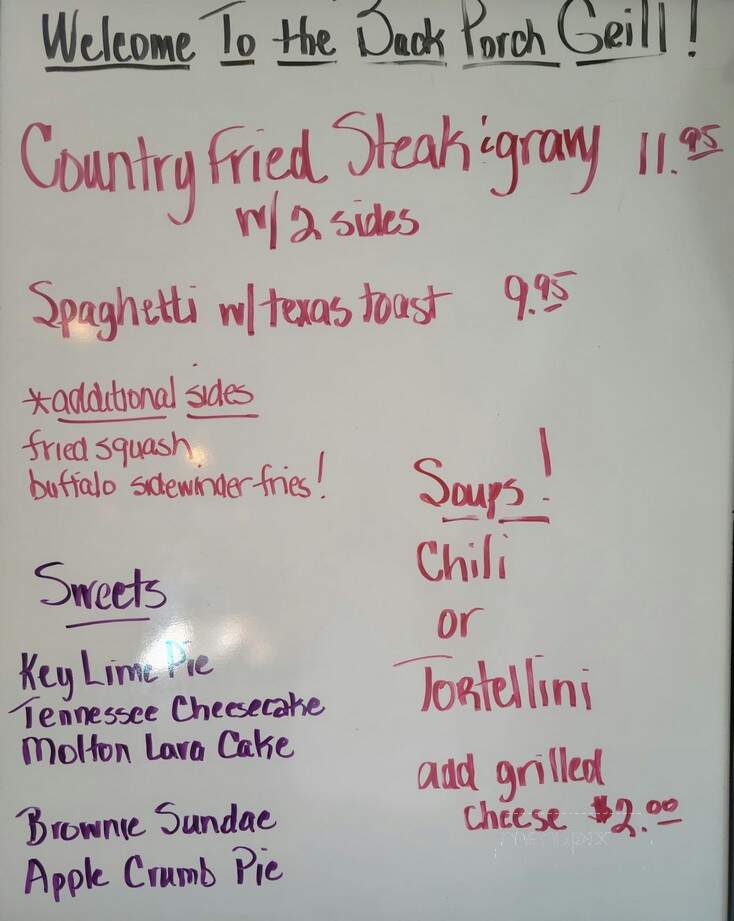 Welcome To the Back Porch Grill!
Country Fried Steak 'gravy 11.95
w/2 sides
Spaghetti w/texas toast 9.95
*additional sides
fried squash
buffalo sidewinder fries!
Soups!
Chili
or
Tortellini
add grilled
cheese $2.00
Sweets
Key Lime Pie
Tennessee Cheesecake
Molton Lava Cake
Brownie Sundae
Apple Crumb Pie
menupix